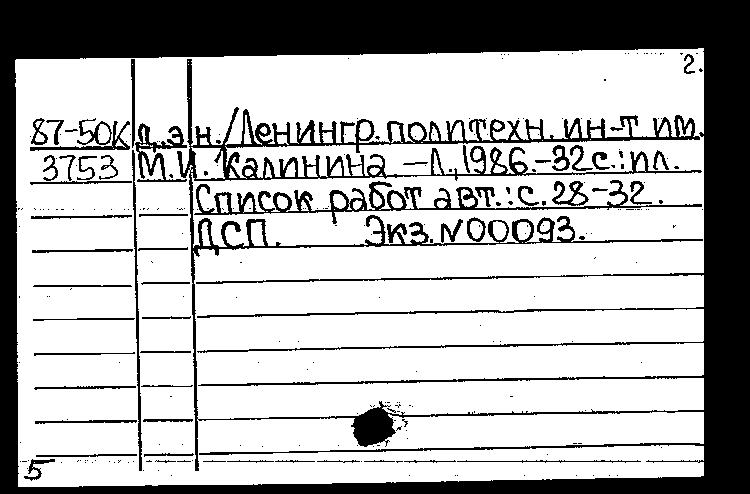 2.
87-50К д.э.н./Ленингр.политехн. ин-т им.
3753 М.И. Калинина -Л.,1986.-32с.:ил.
Список работ авт.:с.28-32.
ДСП. Экз.N00093.
5